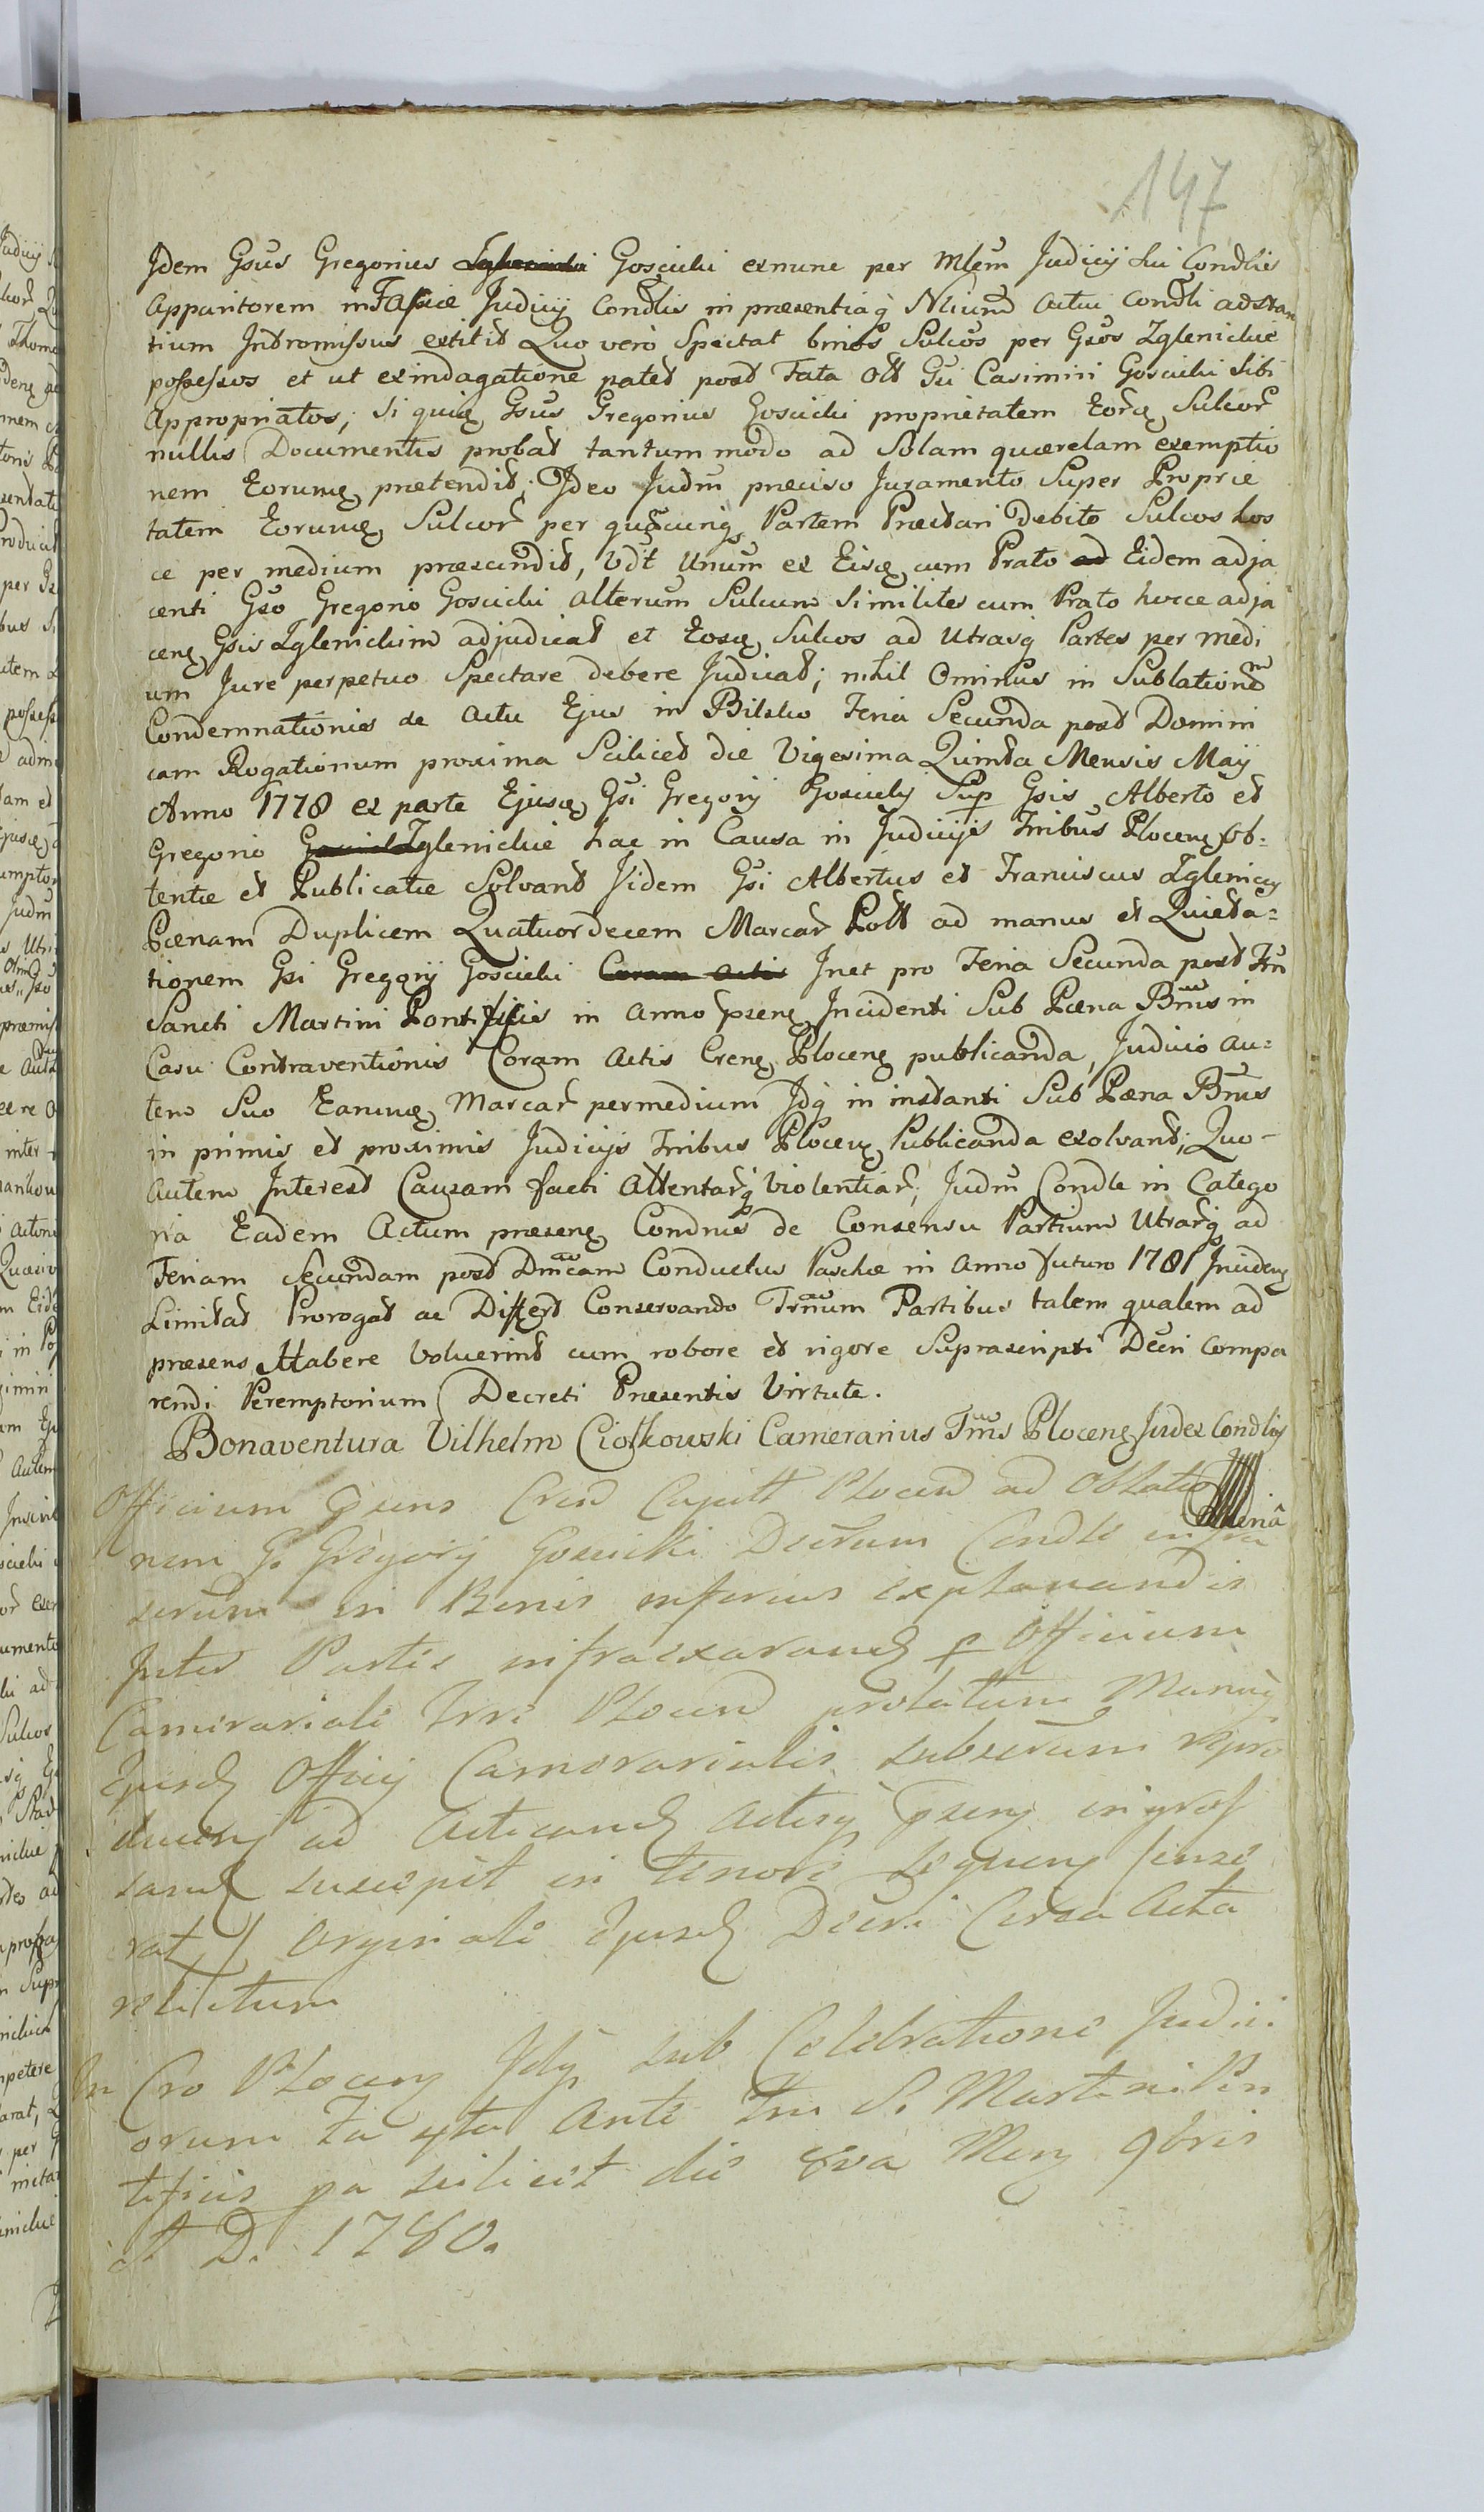 147
Jdem Gsus Gregorius Goscicki exnunc per Mlem Judicij hui Condlis
Apparitorem in Facie Judicij Condlis in præsentiaq Nlium actui Condli adstan
tium Intromissus extitit Quo verò Spectat binos Sulcos per Gsos Zglenickie
possessos et ut exindagatione patet post Fata Olt Gsi Casimiri Goscicki Sibi
Appropriatos; Si quid Gsus Gregorius Goscicki proprietatem Eord Sulcor
nullis Documentis probat tantum modo ad Solam quærelam exemptio
nem Eorumd prætendit; Jdeo Judm præciso Juramento Super Proprie
tatem Eorumd Sulcor per quamcunq Partem Præstari debito Sulcos hos
ce per medium præscindit, Vdt Unum ex Eisd cum Prato Eidem adja
centi Gso Gregorio Goscicki alterum Sulcum Similiter cum Prato huicce adja
cen Gsis Zglenickim adjudicat et Eosd Sulcos ad Utrasq Partes per medi
um Jure perpetuo Spectare debere Judicat; nihil Ominus in Sublationem
Condemnationis de Actu Ejus in Bilsko Feria Secunda post Domini
cam Rogationum proxima Scilicet die Vigesima Quinta Mensis Maij
Anno 1778 ex parte Ejusd Gsi Gregorij Goscicki Sup Gsis Alberto et
Gregorio Zglenickie hac in Causa in Judicijs Tribus Plocen Ob-
tentæ et Publicatæ Solvant Jidem Gsi Albertus et Franciscus Zgleniccy
Pœnam Duplicem Quatuordecem Marcar Poll ad manus et Quieta-
tionem Gsi Gregorij Goscicki Coram actis Jnet pro Feria Secunda post Ftu
Sancti Martini Pontificis in Anno psene Incidenti Sub Pœna Bnis in
Casu Contraventionis Coram Actis Cren Plocen publicanda, Judicio au-
tem Suo Earumd Marcar permedium Jdq in instanti Sub Pœna Bnis
in primis et proximis Judicijs Tribus Plocen Publicanda exolvant; Quo-
autem Interest Causam facti Attentarq Violentiar; Judm Condle in Catego
ria Eadem Actum præsen Condnis de Consensu Partium Utrarq ad
Feriam Secundam post Dnicam Conductus Paschæ in Anno futuro 1781 Jnciden
Limitat Prorogat ac Differt Conservando Trnum Partibus talem qualem ad
præsens Habere Voluerint cum robore et rigore Suprascripti Decri Compa
rendi Peremptorium Decreti Præsentis Virtute.
Bonaventura Vilhelm Ciołkowski Camerarius Trris Plocen Judex Condlis
Officium psens Cren Capitt Plocen ad Oblatio
nem G. Gregorij Goscicki Decrum Condle infra
scrum in Bonis inferius explanandis
Inter Partes infraexarand p Officium
Camerariale Trre Plocen prolatum Manuq
Ejusd Officij Camerarialis subscrum repro
ducen ad Acticand Actisq psen ingros
sand suscepit in tenore sequen sense
rat, Originali Ejusd Decri Circa Acta
relictum
In Cro Plocen Jdq sub Celebratione Judici
orum Fa 4ta Ante Ftu S. Martini Pon
tificis pa scilicet die 8va Men 9bris
A D. 1780.